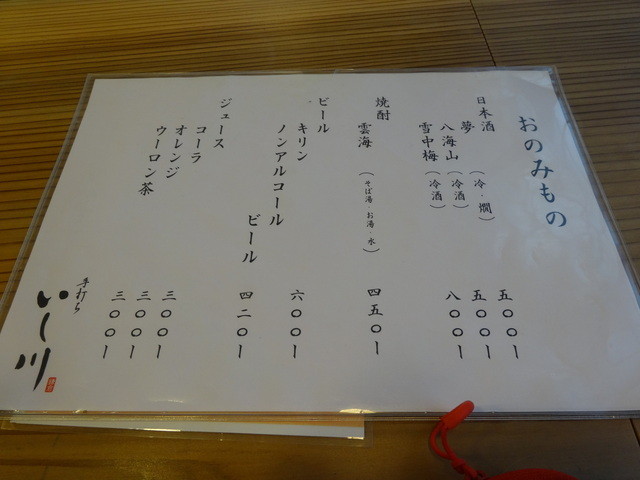 おのみもの
日本酒
夢 (冷・燗) 五〇〇ー
八海山 (冷酒) 五〇〇ー
雪中梅 (冷酒) 八〇〇ー
焼酎
雲海 (そば湯・お湯・水) 四五〇ー
ビール
キリン 六〇〇ー
ノンアルコール
ビール 四二〇ー
ジュース
コーラ 三〇〇ー
オレンジ 三〇〇ー
ウーロン茶 三〇〇ー
手打ち
いし川